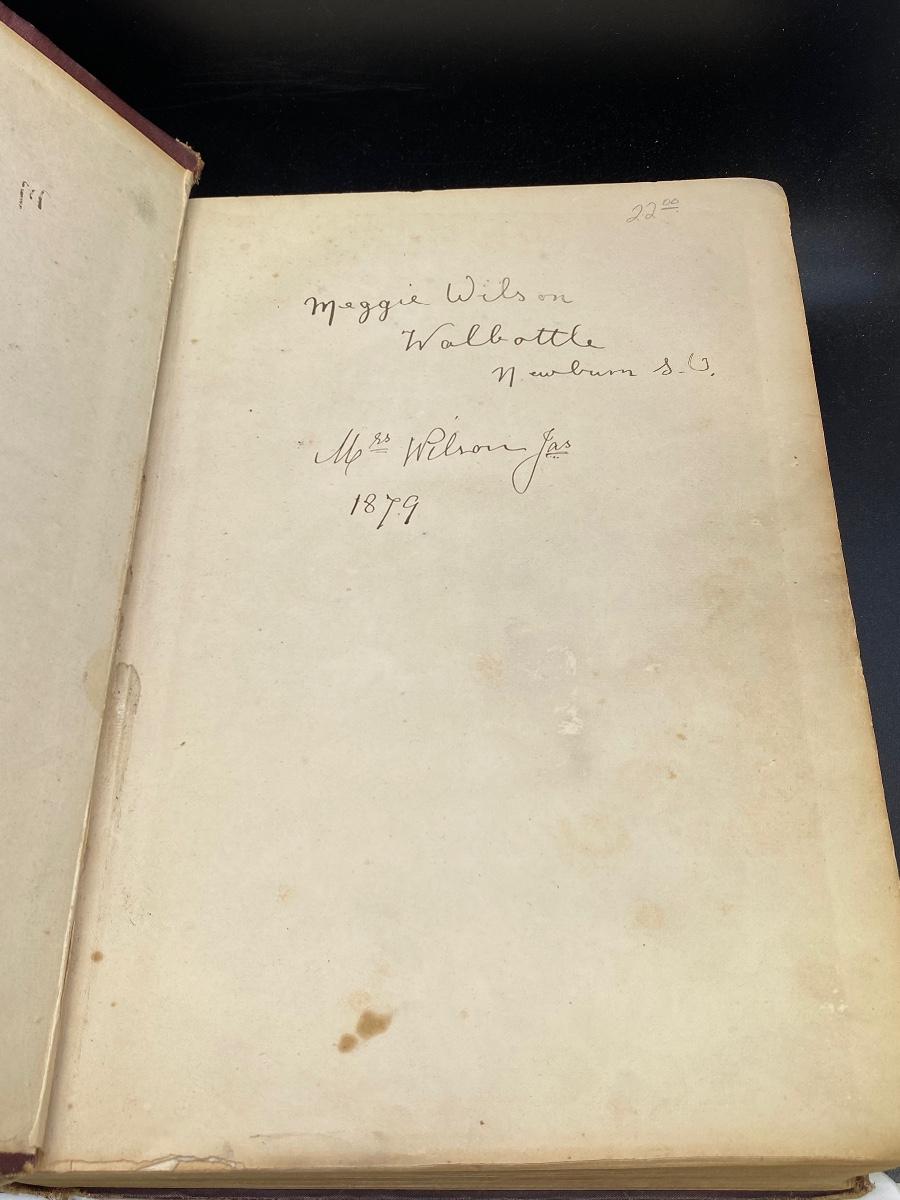 22 00
Meggie Wilson
Walbottle
Newburn S.O.
Mrs Wilson Jas
1879